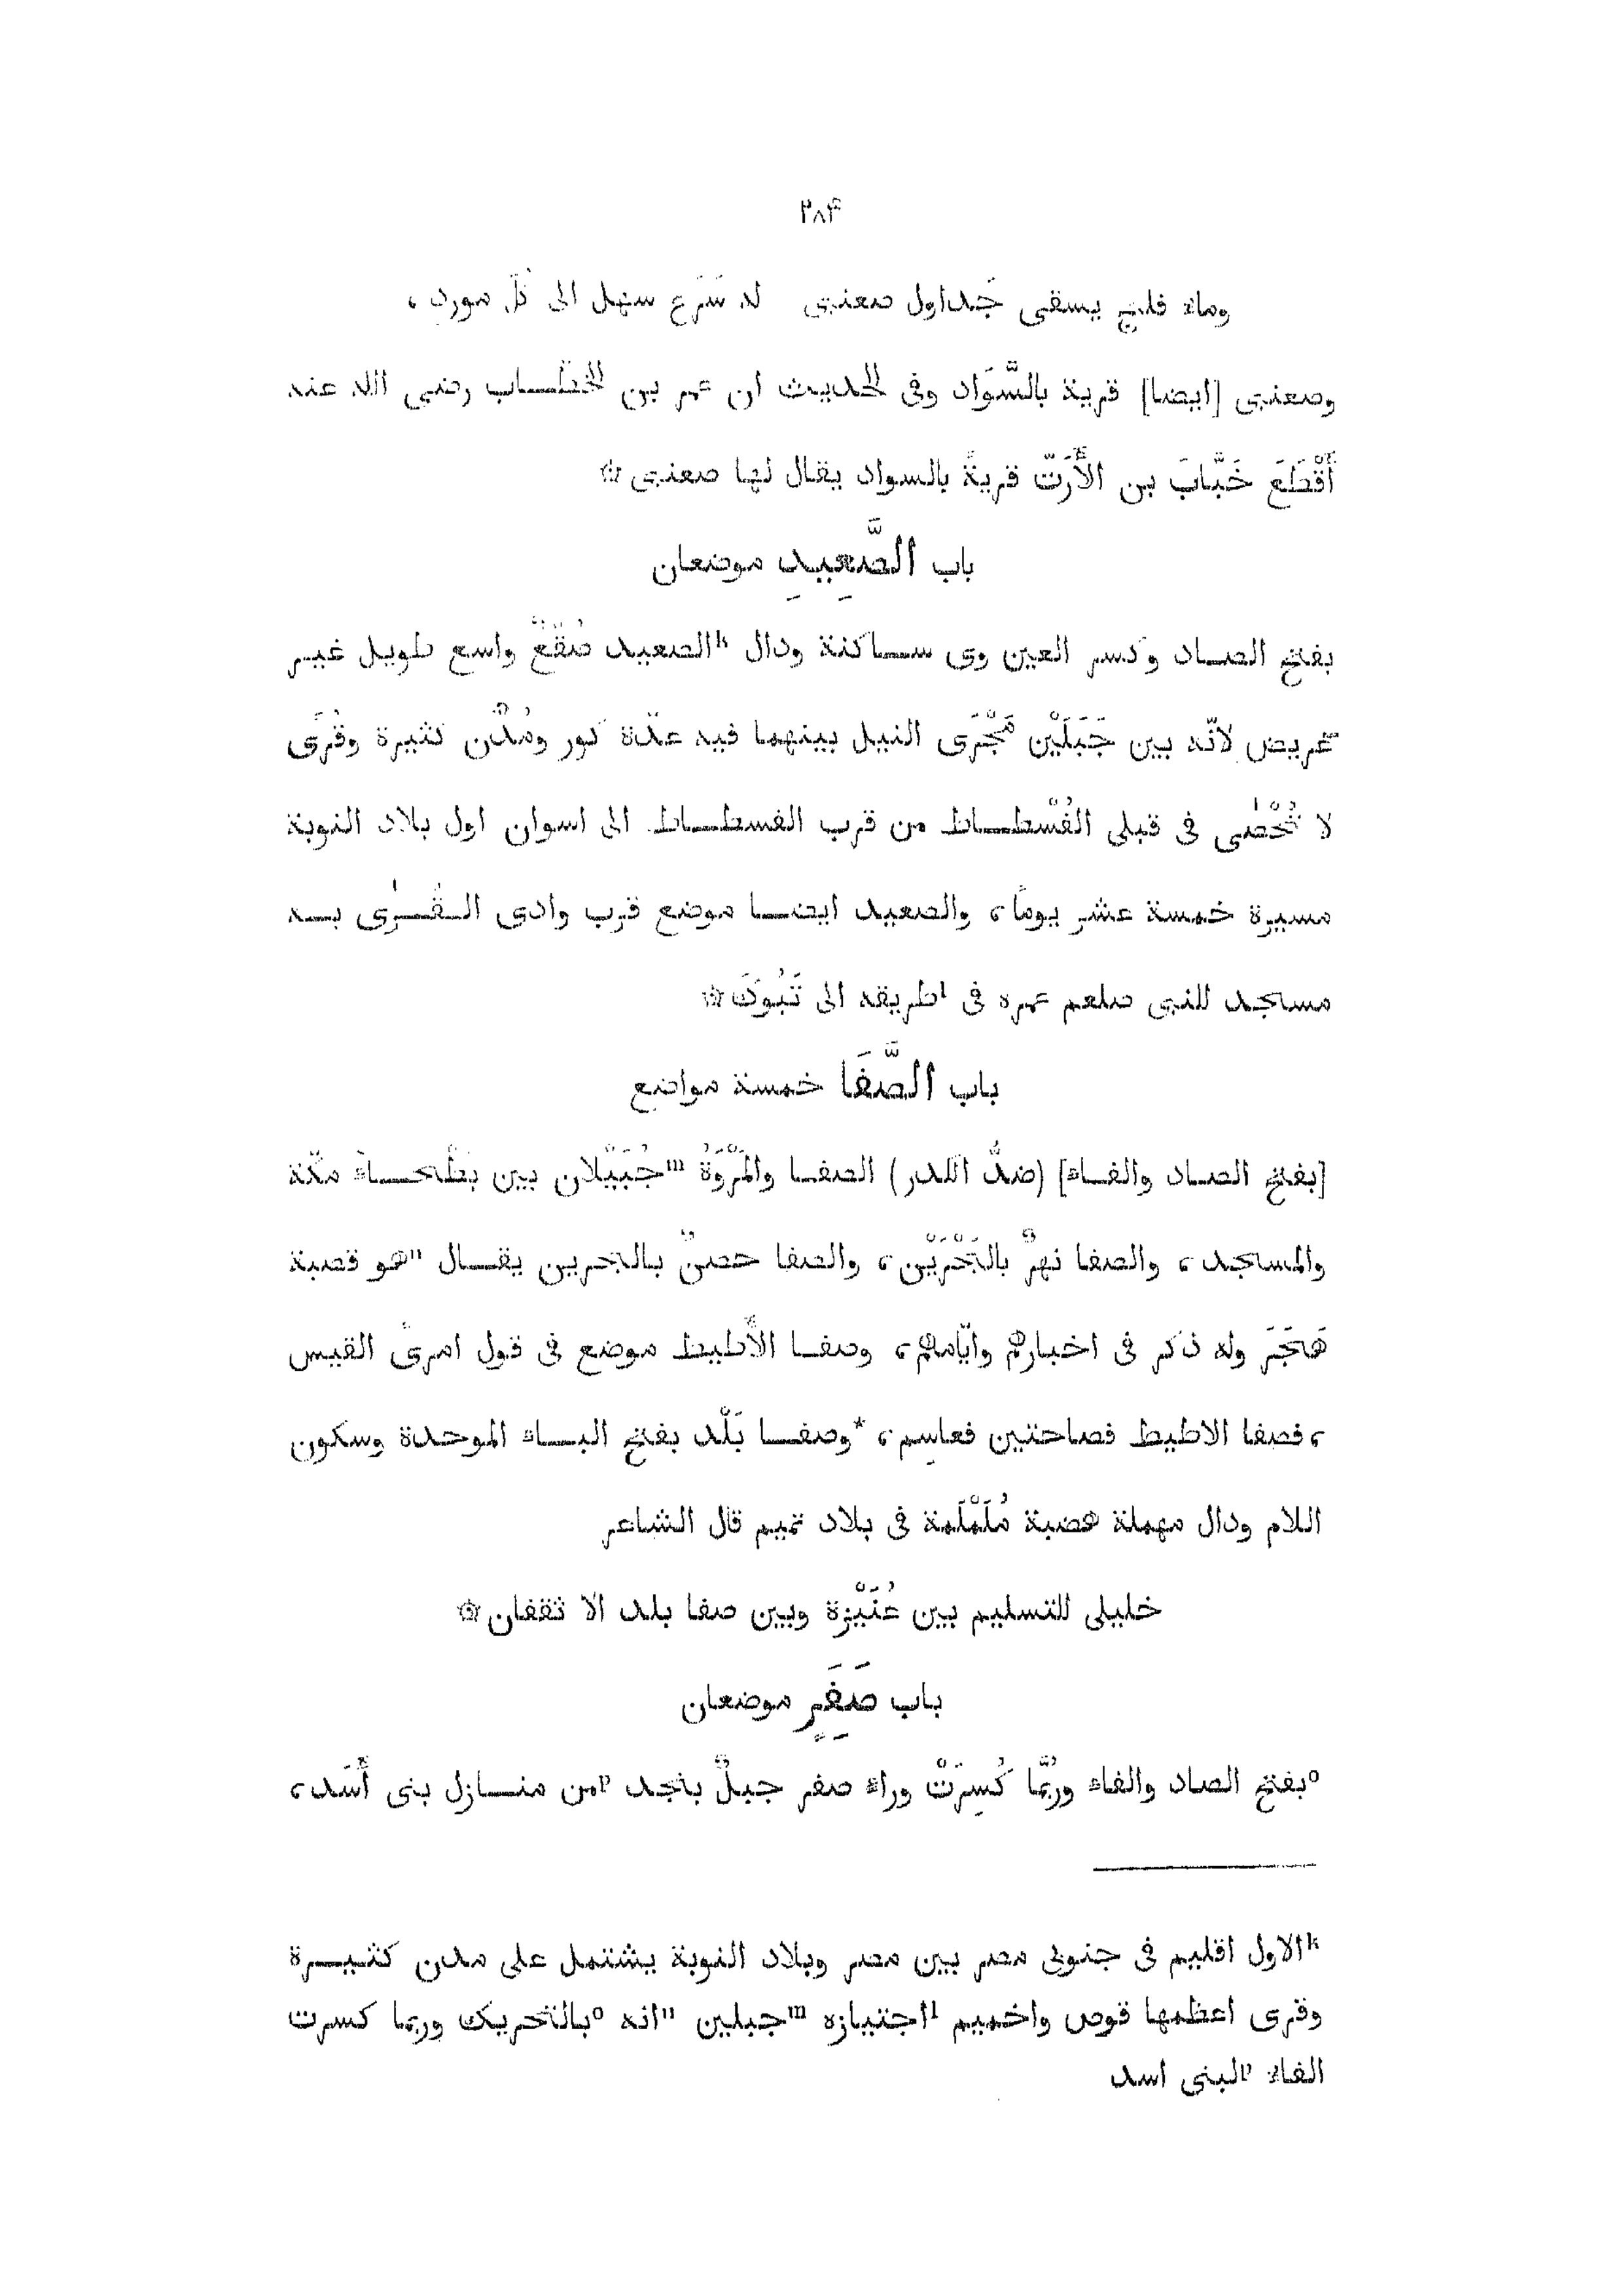 ٢٨۴
وماء فلج يسقى جَداول صعنبى له شَرَع سهل الى كلّ مورد ،
وصعنبى [ايضا] قرية بالسَّوَاد وفى الحديث ان عمر بن الخطّاب رضى الله عنه
أَقْطَعَ خَبَّابَ بن الأَرَتّ قريةً بالسواد يقال لها صعنبى ۞
باب الصَّعِيدِ موضعان
بفتح الصاد وكسر العين وى ساكنة ودال kالصعيد صُقْعٌ واسع طويل غير
عريض لانّه بين جَبَلَيْن مَجْرَى النيل بينهما فيه عدّة كور ومُدُن كثيرة وقُرًى
لا تُحْصٰى فى قبلى الفُسْطاط من قرب الفسطاط الى اسوان اول بلاد النوبة
مسيرة خمسة عشر يومًا ، والصعيد ايضا موضع قرب وادى القُرٰى به
مساجد للنبى صلعم عمره فى lطريقه الى تَبُوكَ ۞
باب الصَّفَا خمسة مواضع
[بفتح الصاد والفاء] (ضدُّ الكدر) الصفا والمَرْوَةُ mجُبَيْلان بين بَطْحاء مكّة
والمسجد ، والصفا نهرٌ بالبَحْرَيْن ، والصفا حصنٌ بالبحرين يقال nهو قصبة
هَجَرَ وله ذكر فى اخبارهم وايّامهم ، وصفا الأَطيط موضع فى قول امرئ القيس
، فصفا الاطيط فصاحتين فعاسِمٍ ، *وصفا بَلْد بفتح الباء الموحدة وسكون
اللام ودال مهملة هضبة مُلَمْلَمة فى بلاد تميم قال الشاعر
خليلى للتسليم بين عُنَيْزة وبين صفا بلد الا تقفان ۞
باب صَفَرٍ موضعان
oبفتح الصاد والفاء ورُبَّما كُسِرَتْ وراء صفر جبلٌ بنجد pمن منازل بنى أَسَد ،
kالاول اقليم فى جنوبى مصر بين مصر وبلاد النوبة يشتمل على مدن كثيرة
وقرى اعظمها قوص واخميم lاجتيازه mجبلين nانه oبالتحريك وربما كسرت
الفاء pلبنى اسد